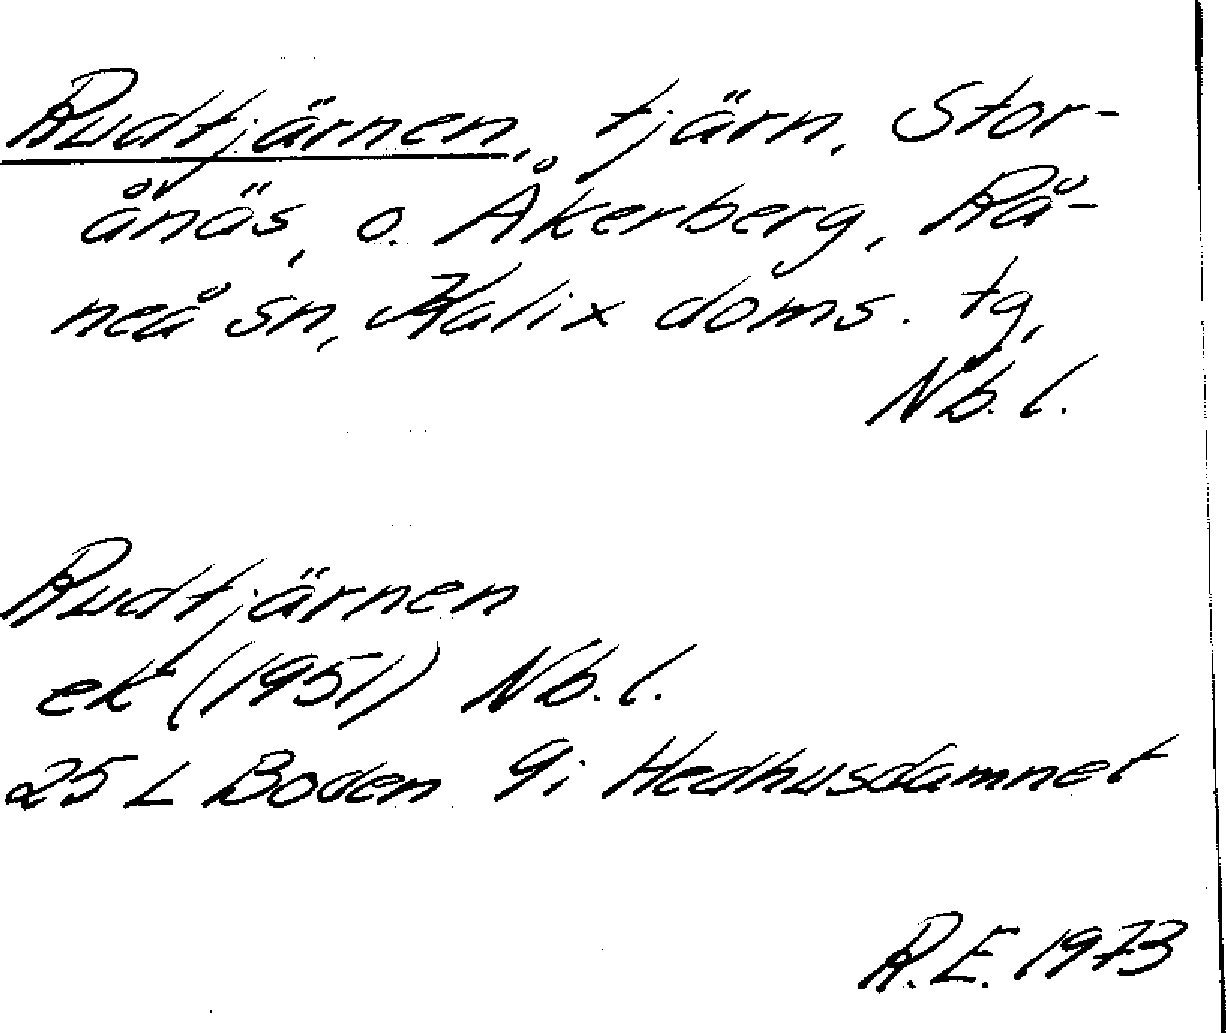 Rudtjärnen, tjärn, Stor-
ånäs, o. Åkerberg, Rå-
neå sn, Kalix doms. tg,
Nb. l.
Rudtjärnen
ek (1951) Nb. l.
25 L Boden 9i Hedhusdamnet
R.E. 1973